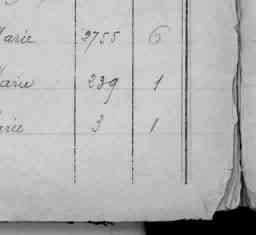 Marie 2755 6
Marie 239 1
Marie 3 1